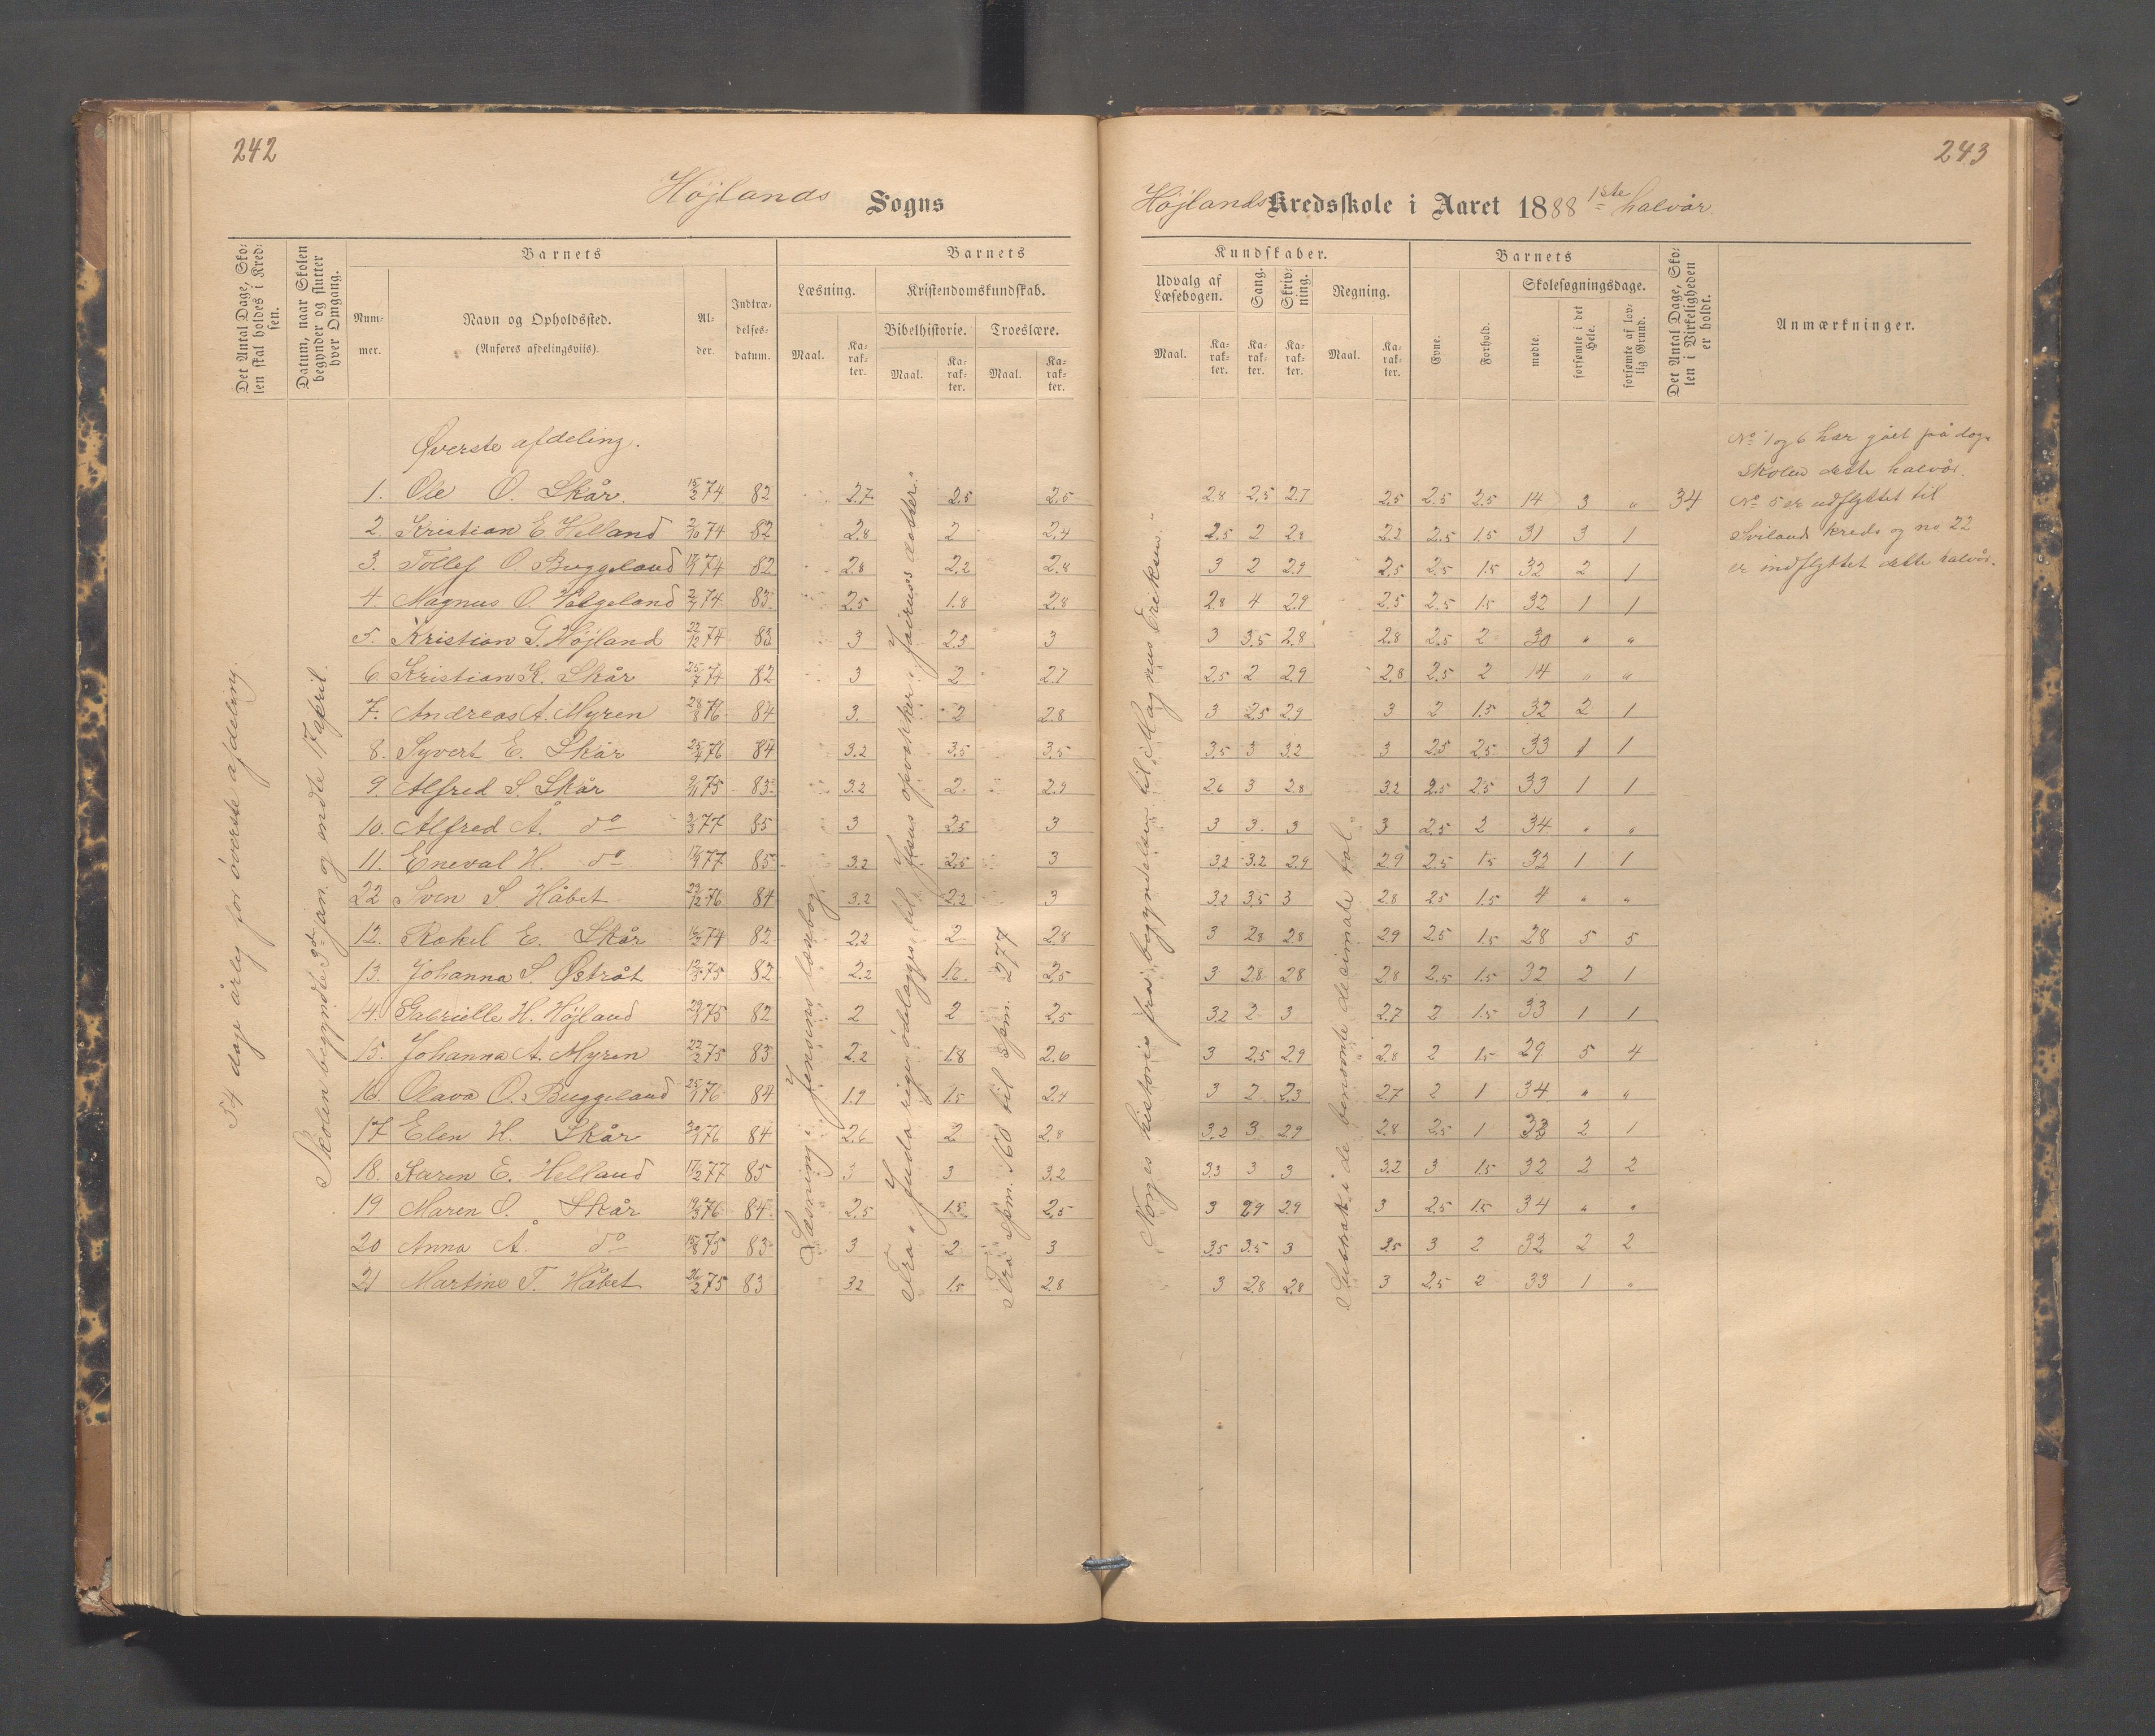 242
Højlands Sogns
Det Antal Dage, Skolen skal holdes i Kredsen.
Datum, naar Skolen begynder og slutter hver Omgang.
Barnets
Nummer.
Navn og Opholdssted.
(Anføres afdelingsvis).
Alder.
Indtrædelsesdatum.
Barnets
Læsning.
Kristendomskundskab.
Bibelhistorie.
Troeslære.
Maal. Karakter. Maal. Karakter. Maal. Karakter.
54 dage årlig for øverste afdeling.
Skolen begyndte 3die jan. og endte 17 april.
Læsning i Jensens læsebog
Fra "Juda rige ødelægges" til "Jesus opvækker Jairus's datter."
Fra spm. 160 til spm. 277
Øverste afdeling.
1. Ole O. Skår. 15/2 74 82 2.7 2.5 2.5
2. Kristian E. Helland 2/10 74 82 2.8 2 2.4
3. Tollef O. Buggeland 74 82 2.8 2.2 2.8
4. Magnus O. Hatgeland 74 83 2.5 1.8 2.8
5. Kristian T. Højland 22/12 74 83 3 2.5 3
6. Kristian K. Skår 25/7 74 82 3 2 2.7
7. Andreas A. Myren 28/8 76 84 3. 2 2.8
8. Syvert E. Skår 76 84 3.2 3.5 3.5
9. Alfred S. Skår 75 83 3.2 2. 2.9
10. Alfred Å. do 77 85 3 2.5 3
11. Eneval H. do 77 85 3.2 2.5 3
22 Sven S Håbet 23/12 76 84 3.2 2.2 3
12. Rakel E. Skår 74 82 2.2 2 2.8
13. Johanna S. Østråt 75 82 2.2 2.5
14. Gabrielle H. Højland 75 82 2 2 2.5
15. Johanna A. Myren 22/2 75 83 2.2 1.8 2.6
16. Olava O. Buggeland 76 84 1.9 1.5 2.4
17 Elen H. Skår 76 84 2.6 2 2.8
18. Karen E. Helland 77 85 3 3 3.2
19 Maren O. Skår 76 84 2.5 1.5 2.5
20 Anna Å. do 75 83 3 2 3
21 Martine T. Håbet 75 83 3.2 1.5 2.8
243
Højlands Kredsskole i Aaret 1888 1ste halvår
Kundskaber.
Udvalg af Læsebogen.
Sang.
Skrivning.
Regning.
Maal. Karakter. Karakter. Karakter. Maal. Karakter.
Barnets
Evne.
Forhold.
Skolesøgningsdage.
mødte.
forsømte i det Hele.
forsømte af lovlig Grund.
Det Antal Dage, Skolen i Virkeligheden er holdt.
Anmærkninger.
Norges historie fra begyndelsen til "Magnus Eriksøn"
i de benævnte decimale tal
2.8 2.5 2.7 2.5 2.5 2.5 14 3 " 34
2.5 2 2.8 2.2 2.5 1.5 31 3 1
3 2 2.9 2.5 2.5 1.5 32 2 1
2.8 4 2.9 2.5 2.5 1.5 32 1 1
3 3.5 2.8 2.8 2.5 2 30 " "
2.5 2 2.9 2.8 2.5 2 14 " "
3 2.5 2.9 3 2 1.5 32 2 1
3.5 3 3.2 3 2.5 2.5 33 1 1
2.6 3 2.8 3.2 2.5 2.5 33 1 1
3 3. 3 3 2.5 2 34 " "
3.2 3.2 2.9 2.9 2.5 1.5 32 1 1
3.2 3.5 3 2.8 2.5 1.5 4 " "
3 2.8 2.8 2.9 2.5 1.5 28 5 5
3 2.8 2.8 2.8 2.5 1.5 32 2 1
3.2 2 3 2.7 2 1.5 33 1 1
3 2.5 2.9 2.8 2 1.5 29 5 4
3 2 2.3 2.7 2 1 34 " "
3.2 3 2.9 2.8 2.5 1 33 2 1
3.3 3 3 3.2 3 1.5 32 2 2
3 2.9 2.9 3 2.5 1.5 34 " "
3.5 3.5 3 3.5 3 2 32 2 2
3 2.8 2.8 3 2.5 2 33 1 "
No 1 og 6 har gået på dag-
skolen dette halvår.
No 5 er udflyttet til
Svilands kreds og no 22
er indflyttet dette halvår.